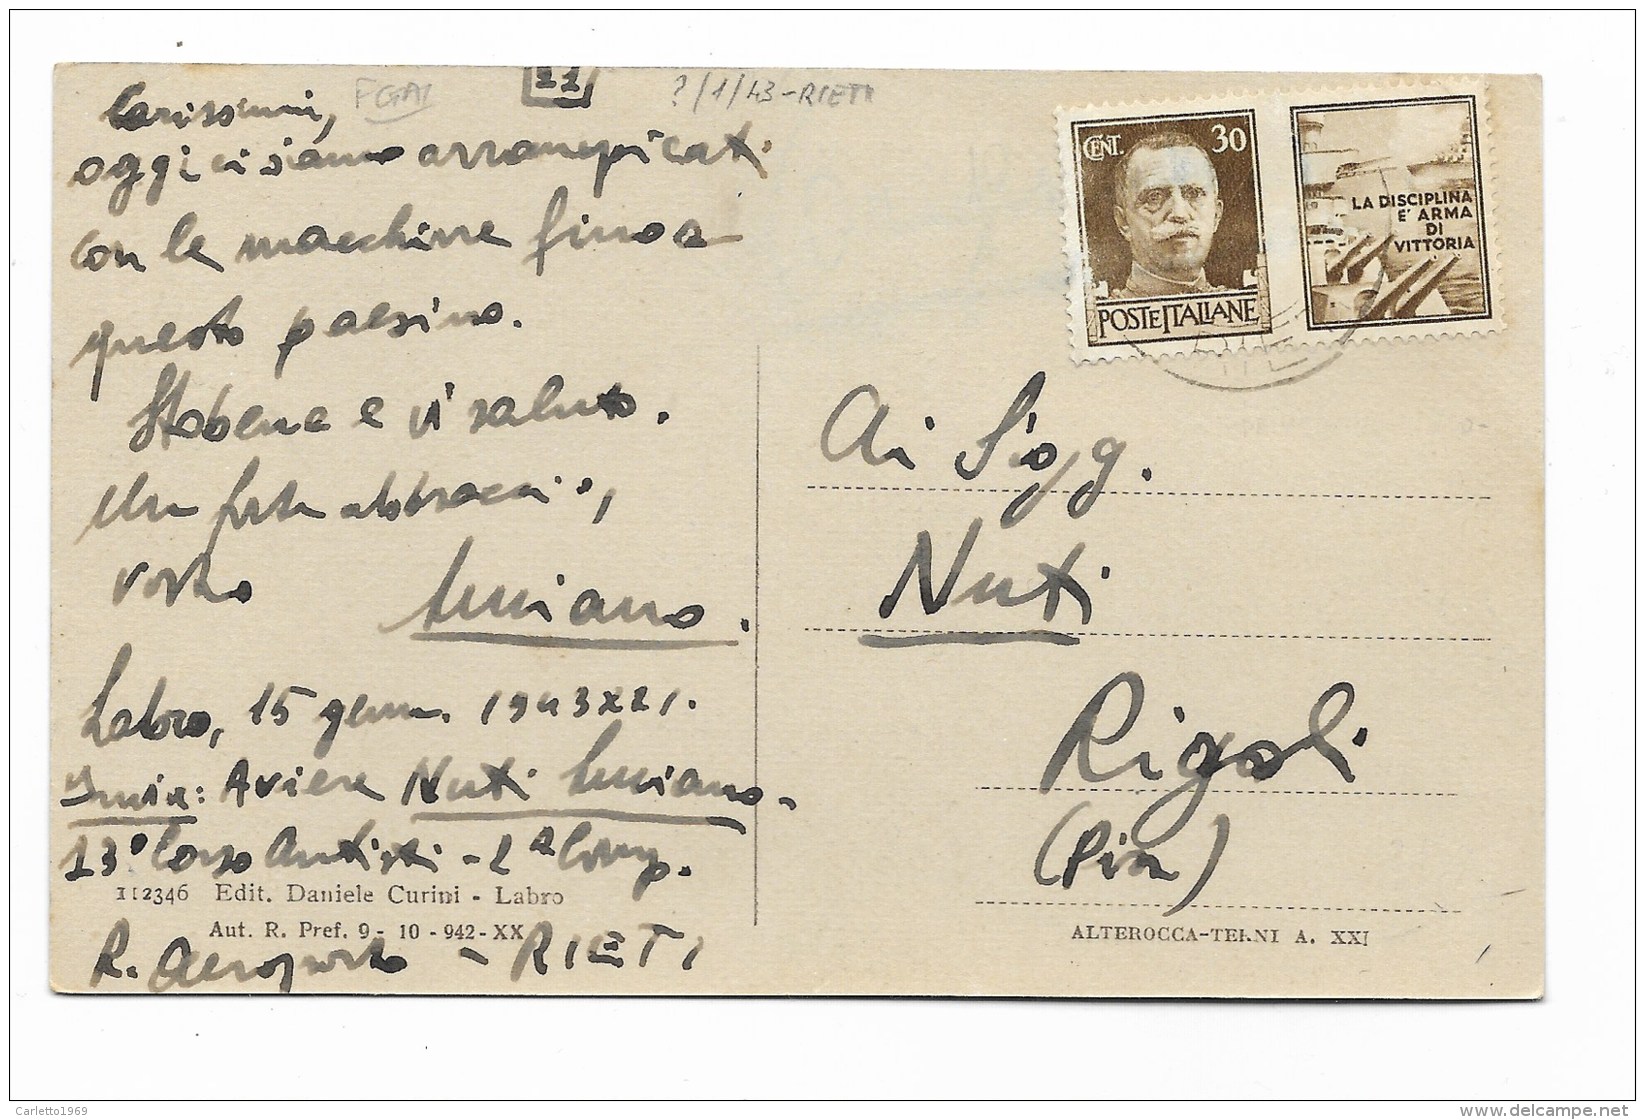 FGAI
11
?/1/43 - RIETI
Carissimi,
oggi ci siamo arrampicati
con le macchine fino a
questo paesino.
Sto bene e vi saluto.
Un forte abbraccio,
vostro Luciano.
Labro, 15 genn. 1943 XXI.
Invia: Aviere Nuti Luciano -
13° Corso Autisti - 2ª Comp.
112346 Edit. Daniele Curini - Labro
Aut. R. Pref. 9 - 10 - 942 - XX
R. Aeroporto - RIETI
CENT. 30
POSTE ITALIANE
LA DISCIPLINA
E' ARMA
DI
VITTORIA
Ai Sigg.
Nuti
Rigoli
(Pisa)
ALTEROCCA-TERNI A. XXI
Carletto1969
www.delcampe.net